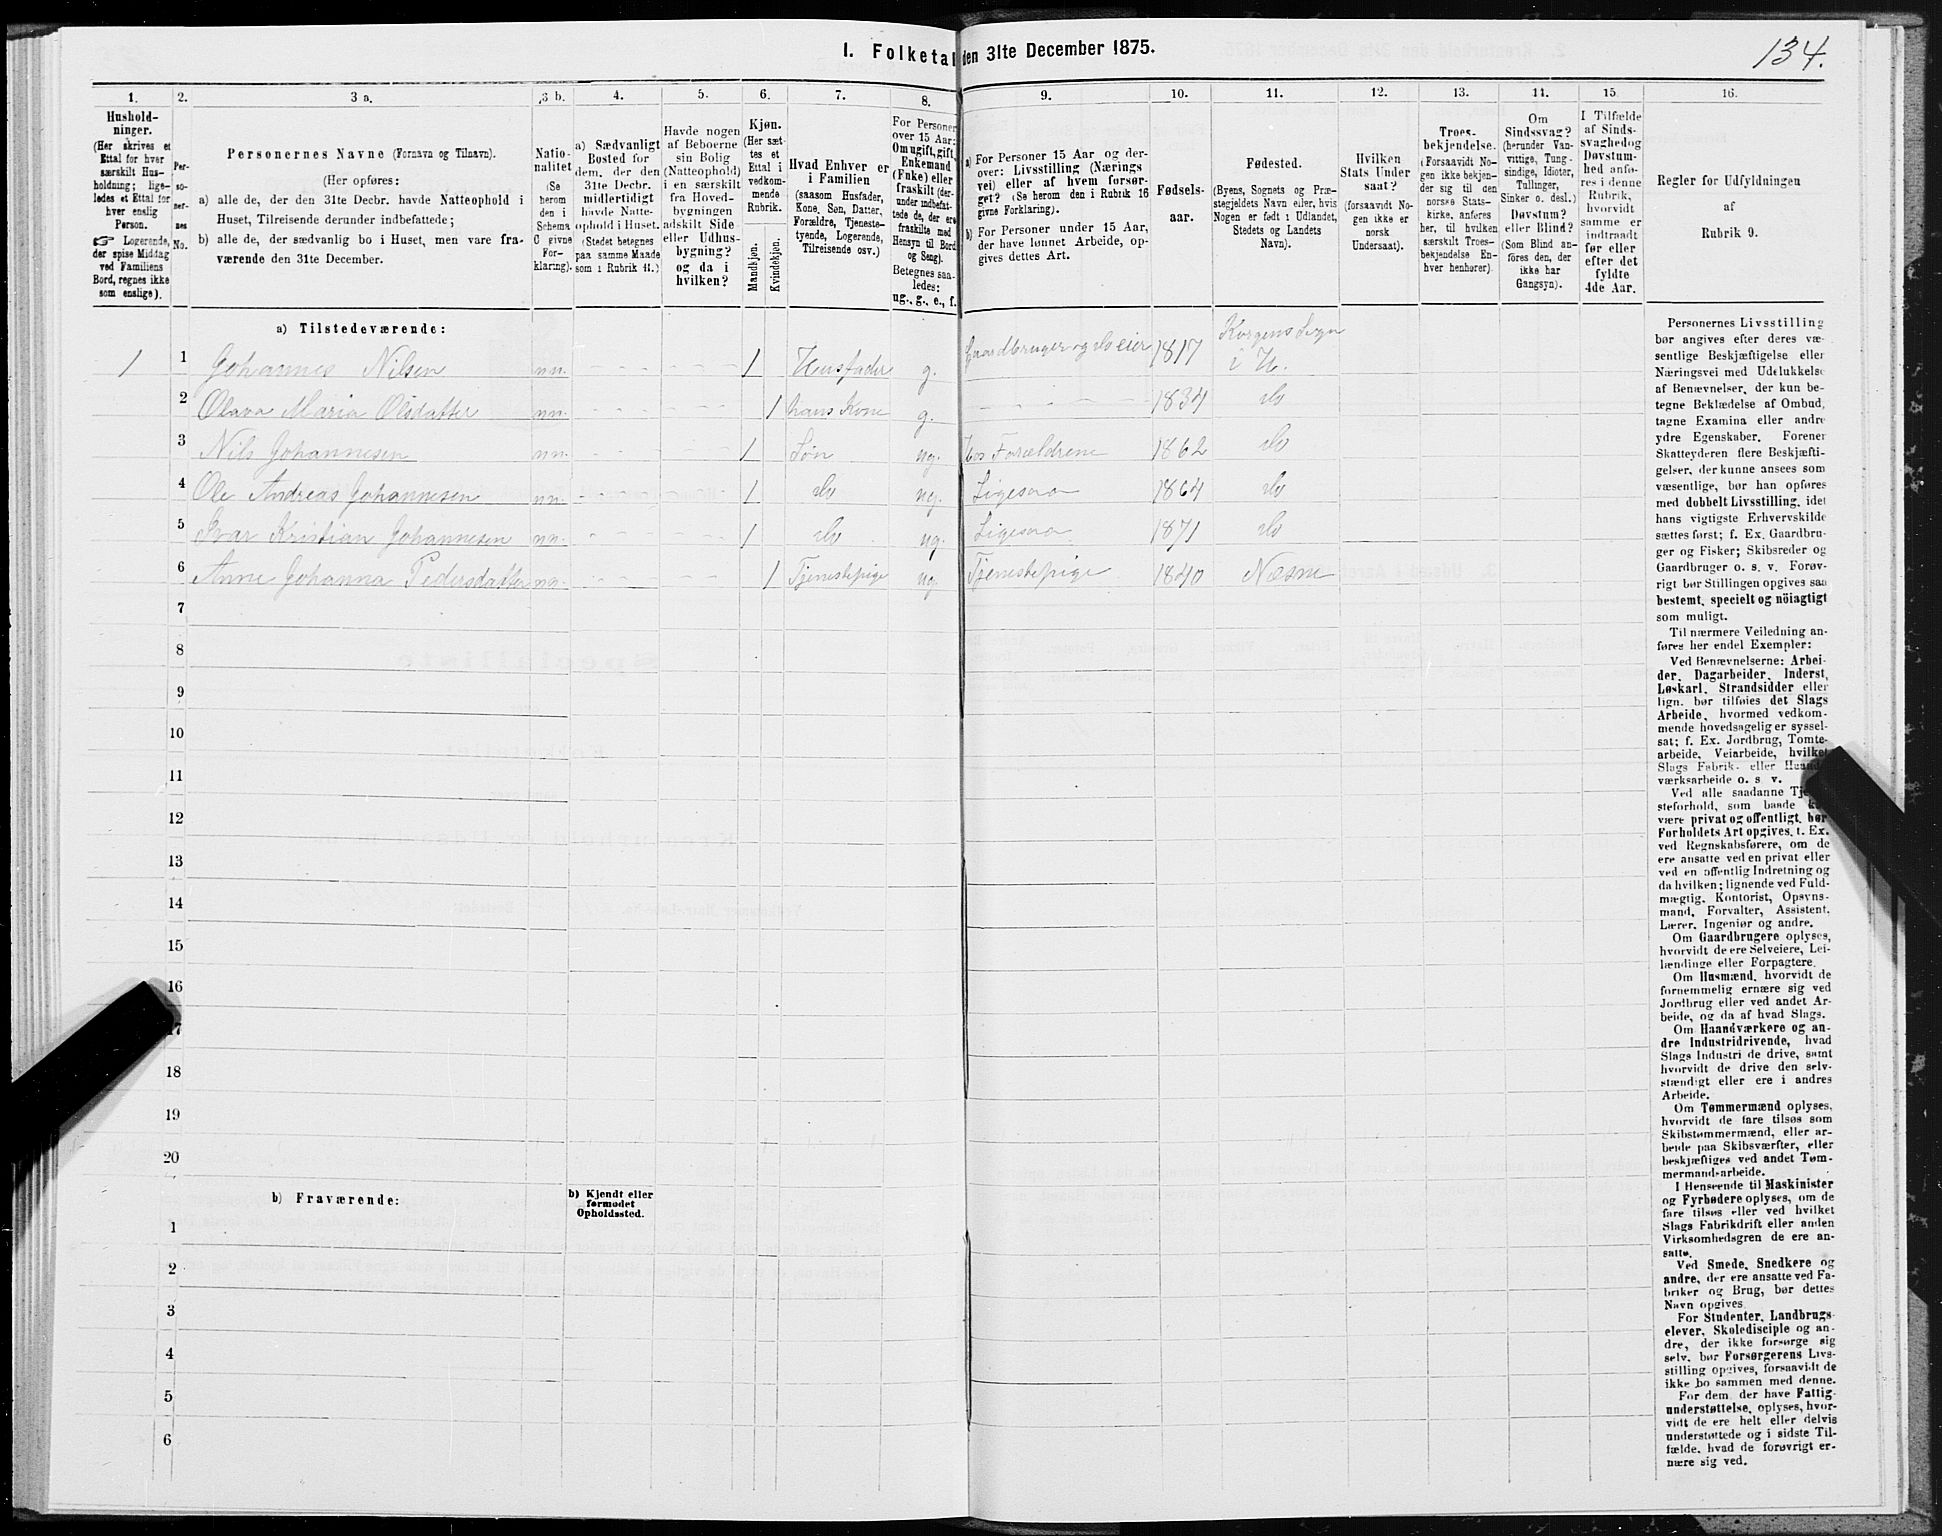 I. Folketal den 31te December 1875.
134.
1.
2.
3 a.
3 b.
4.
5.
6.
7.
8.
9.
10.
11.
12.
13.
14.
15.
16.
Hushold-
ninger.
(Her skrives et
Ettal for hver
særskilt Hus-
holdning; lige-
ledes et Ettal for
hver enslig
Person.
☞ Logerende,
der spise Middag
ved Familiens
Bord, regnes ikke
som enslige).
Per-
so-
ner-
nes
No.
Personernes Navne (Fornavn og Tilnavn).
(Her opføres:
a) alle de, der den 31te Decbr. havde Natteophold i
Huset, Tilreisende derunder indbefattede;
b) alle de, der sædvanlig bo i Huset, men vare fra-
værende den 31te December.
Natio-
nalitet
(Se
herom
den i
Schema
C givne
For-
klaring).
a) Sædvanligt
Bosted for
dem, der den
31te Decbr.
midlertidigt
havde Natte-
ophold i Huset.
(Stedet betegnes
paa samme Maade
som i Rubrik 11.)
Havde nogen
af Beboerne
sin Bolig
(Natteophold)
i en særskilt
fra Hoved-
bygningen
adskilt Side-
eller Udhus-
bygning?
og da i
hvilken?
Kjøn.
(Her sæt-
tes et
Ettal i
vedkom-
mende
Rubrik.
Mandkjøn.
Kvindekjøn.
Hvad Enhver er
i Familien
(saasom Husfader,
Kone, Søn, Datter,
Forældre, Tjeneste-
tyende, Logerende,
Tilreisende osv.)
For Personer
over 15 Aar:
Om ugift, gift,
Enkemand
(Enke) eller
fraskilt (der-
under indbefat-
tede de, der ere
fraskilte med
Hensyn til Bord
og Seng).
Betegnes saa-
ledes:
ug., g., e., f.
a) For Personer 15 Aar og der-
over: Livsstilling (Nærings
vei) eller af hvem forsør-
get? (Se herom den i Rubrik 16
givne Forklaring).
b) For Personer under 15 Aar,
der have lønnet Arbeide, op-
gives dettes Art.
Fødsels-
aar.
Fødested.
(Byens, Sognets og Præ-
stegjeldets Navn eller, hvis
Nogen er født i Udlandet,
Stedets og Landets
Navn).
Hvilken
Stats Under
saat?
(forsaavidt No-
gen ikke er
norsk
Undersaat).
Troes-
bekjendelse.
(Forsaavidt No-
gen ikke bekjen-
der sig til den
norske Stats-
kirke, anføres
her, til hvilken
særskilt Troes-
bekjendelse En-
hver henhører).
Om
Sindssvag?
(herunder Van-
vittige, Tung-
sindige, Idioter,
Tullinger,
Sinker o. desl.)
Døvstum?
eller Blind?
(Som Blind an-
føres den, der
ikke har
Gangsyn).
I Tilfælde
af Sinds-
svaghed og
Døvstum-
hed anfø-
res i denne
Rubrik,
hvorvidt
samme er
indtraadt
før eller
efter det
fyldte
4de Aar.
Regler for Udfyldningen
af
Rubrik 9.
a) Tilstedeværende:
1 1 Johannes Nilsen nn. 1 Husfader g. Gaardbruger og Selveier 1817 Korgens Sogn i H.
2 Olava Maria Olsdatter nn. 1 hans Kone g. 1834 do
3 Nils Johannesen nn. 1 Søn ug. hos Forældrene 1862 do
4 Ole Andreas Johannesen nn. 1 do ug. Ligesaa 1864 do
5 Ivar Kristian Johannesen nn. 1 do ug. Ligesaa 1871 do
6 Anne Johanna Pedersdatter nn. 1 Tjenestepige ug. Tjenestepige 1840 Næsne
7
8
9
10
11
12
13
14
15
16
17
18
19
20
b) Fraværende:
b) Kjendt eller
formødet
Opholdssted.
1
2
3
4
5
6
Personernes Livsstilling
bør angives efter deres væ-
sentlige Beskjæftigelse eller
Næringsvei med Udelukkelse
af Benævnelser, der kun be-
tegne Beklædelse af Ombud,
tagne Examina eller andre
ydre Egenskaber. Forener
Skatteyderen flere Beskjæfti-
gelser, der kunne ansees som
væsentlige, bør han opføres
med dobbelt Livsstilling, idet
hans vigtigste Erhvervskilde
sættes først; f. Ex. Gaardbru-
ger og Fisker; Skibsreder og
Gaardbruger o. s. v. Forøv-
rigt bør Stillingen opgives saa
bestemt, specielt og nöiagtigt
som muligt.
Til nærmere Veiledning an-
føres her endel Exempler:
Ved Benævnelserne: Arbei-
der, Dagarbeider, Inderst,
Løskarl, Strandsidder eller
lign. bør tilføies det Slags
Arbeide, hvormed vedkom-
mende hovedsagelig er syssel-
sat; f. Ex. Jordbrug, Tomte-
arbeide, Veiarbeide, hvilket
Slags Fabrik- eller Haand-
værksarbeide o. s. v.
Ved alle saadanne Tje-
steforhold, som baade
være privat og offentligt, bør
Forholdets Art opgives, t. Ex.
ved Regnskabsførere, om de
ere ansatte ved en privat eller
ved en offentlig Indretning og
da hvilken; lignende ved Fuld-
mægtig, Kontorist, Opsyns-
mand, Forvalter, Assistent,
Lærer, Ingeniør og andre.
Om Gaardbrugere oplyses,
hvorvidt de ere Selveiere, Lei-
lændinge eller Forpagtere.
Om Husmænd, hvorvidt de
fornemmelig ernære sig ved
Jordbrug eller ved andet Ar-
beide, og da af hvad Slags.
Om Haandværkere og an-
dre Industridrivende, hvad
Slags Industri de drive, samt
hvorvidt de drive den selv-
stændigt eller ere i andres
Arbeide.
Om Tømmermænd oplyses,
hvorvidt de fare tilsøs som
Skibstømmermænd, eller ar-
beide paa Skibsværfter, eller
beskjæftiges ved andet Tøm-
mermand-arbeide.
I Henseende til Maskinister
og Fyrbødere oplyses, om de
fare tilsøs eller ved hvilket
Slags Fabrikdrift eller anden
Virksomhedsgren de ere an-
satte.
Ved Smede, Snedkere og
andre, der ere ansatte ved Fa-
briker og Brug, bør dettes
Navn opgives.
For Studenter, Landbrugs-
elever, Skoledisciple og an-
dre, der ikke forsørge sig
selv, bør Forsørgerens Livs-
stilling opgives, forsaavidt de
ikke bo sammen med denne.
For dem, der have Fattig-
understøttelse, oplyses, hvor-
vidt de ere helt eller delvis
understøttede og i sidste Til-
fælde, hvad de forøvrigt er-
nære sig ved.